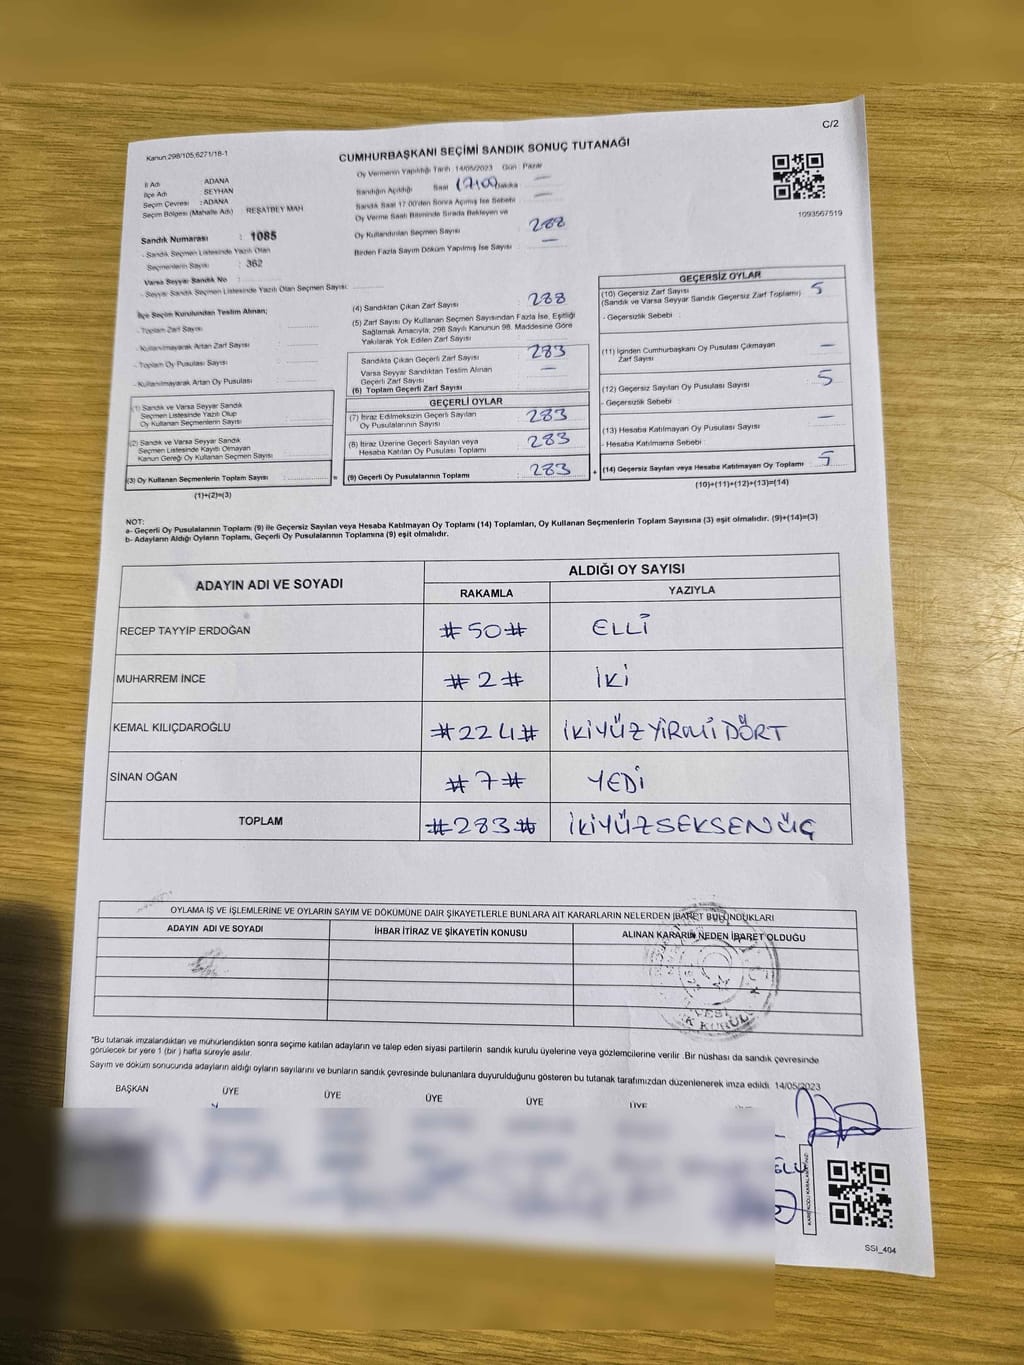 C/2
Kanun.298/105;6271/18-1
CUMHURBAŞKANI SEÇİMİ SANDIK SONUÇ TUTANAĞI
İl Adı : ADANA
İlçe Adı : SEYHAN
Seçim Çevresi : ADANA
Seçim Bölgesi (Mahalle Adı) REŞATBEY MAH.
Sandık Numarası : 1085
- Sandık Seçmen Listesinde Yazılı Olan
Seçmenlerin Sayısı : 362
Varsa Seyyar Sandık No :
- Seyyar Sandık Seçmen Listesinde Yazılı Olan Seçmen Sayısı:
İlçe Seçim Kurulundan Teslim Alınan;
- Toplam Zarf Sayısı :
- Kullanılmayarak Artan Zarf Sayısı :
- Toplam Oy Pusulası Sayısı :
- Kullanılmayarak Artan Oy Pusulası :
(1) Sandık ve Varsa Seyyar Sandık
Seçmen Listesinde Yazılı Olup
Oy Kullanan Seçmenlerin Sayısı :
(2) Sandık ve Varsa Seyyar Sandık
Seçmen Listesinde Kayıtlı Olmayan
Kanun Gereği Oy Kullanan Seçmen Sayısı :
(3) Oy Kullanan Seçmenlerin Toplam Sayısı : =
(1)+(2)=(3)
Oy Vermenin Yapıldığı Tarih :14/05/2023 Gün : Pazar
Sandığın Açıldığı Saat 17:00 Dakika —
Sandık Saat 17.00'den Sonra Açılmış İse Sebebi —
Oy Verme Saati Bitiminde Sırada Bekleyen ve
Oy Kullandırılan Seçmen Sayısı : 288
Birden Fazla Sayım Döküm Yapılmış İse Sayısı : —
(4) Sandıktan Çıkan Zarf Sayısı : 288
(5) Zarf Sayısı Oy Kullanan Seçmen Sayısından Fazla İse, Eşitliği
Sağlamak Amacıyla, 298 Sayılı Kanunun 98. Maddesine Göre
Yakılarak Yok Edilen Zarf Sayısı :
Sandıkta Çıkan Geçerli Zarf Sayısı : 283
Varsa Seyyar Sandıktan Teslim Alınan
Geçerli Zarf Sayısı : —
(6) Toplam Geçerli Zarf Sayısı :
GEÇERLİ OYLAR
(7) İtiraz Edilmeksizin Geçerli Sayılan
Oy Pusulalarının Sayısı : 283
(8) İtiraz Üzerine Geçerli Sayılan veya
Hesaba Katılan Oy Pusulası Toplamı : 283
(9) Geçerli Oy Pusulalarının Toplamı : 283 +
1093567519
GEÇERSİZ OYLAR
(10) Geçersiz Zarf Sayısı
(Sandık ve Varsa Seyyar Sandık Geçersiz Zarf Toplamı) : 5
- Geçersizlik Sebebi :
(11) İçinden Cumhurbaşkanı Oy Pusulası Çıkmayan
Zarf Sayısı : —
(12) Geçersiz Sayılan Oy Pusulası Sayısı : 5
- Geçersizlik Sebebi :
(13) Hesaba Katılmayan Oy Pusulası Sayısı : —
- Hesaba Katılmama Sebebi :
(14) Geçersiz Sayılan veya Hesaba Katılmayan Oy Toplamı : 5
(10)+(11)+(12)+(13)=(14)
NOT:
a- Geçerli Oy Pusulalarının Toplamı (9) ile Geçersiz Sayılan veya Hesaba Katılmayan Oy Toplamı (14) Toplamları, Oy Kullanan Seçmenlerin Toplam Sayısına (3) eşit olmalıdır. (9)+(14)=(3)
b- Adayların Aldığı Oyların Toplamı, Geçerli Oy Pusulalarının Toplamına (9) eşit olmalıdır.
ADAYIN ADI VE SOYADI ALDIĞI OY SAYISI
RAKAMLA YAZIYLA
RECEP TAYYİP ERDOĞAN #50# ELLİ
MUHARREM İNCE #2# İKİ
KEMAL KILIÇDAROĞLU #224# İKİYÜZYİRMİDÖRT
SİNAN OĞAN #7# YEDİ
TOPLAM #283# İKİYÜZSEKSENÜÇ
OYLAMA İŞ VE İŞLEMLERİNE VE OYLARIN SAYIM VE DÖKÜMÜNE DAİR ŞİKAYETLERLE BUNLARA AİT KARARLARIN NELERDEN İBARET BULUNDUKLARI
ADAYIN ADI VE SOYADI İHBAR İTİRAZ VE ŞİKAYETİN KONUSU ALINAN KARARIN NEDEN İBARET OLDUĞU
*Bu tutanak imzalandıktan ve mühürlendikten sonra seçime katılan adayların ve talep eden siyasi partilerin sandık kurulu üyelerine veya gözlemcilerine verilir .Bir nüshası da sandık çevresinde
görülecek bir yere 1 (bir ) hafta süreyle asılır.
Sayım ve döküm sonucunda adayların aldığı oyların sayılarını ve bunların sandık çevresinde bulunanlara duyurulduğunu gösteren bu tutanak tarafımızdan düzenlenerek imza edildi. 14/05/2023
BAŞKAN ÜYE ÜYE ÜYE ÜYE ÜYE
SSI_404